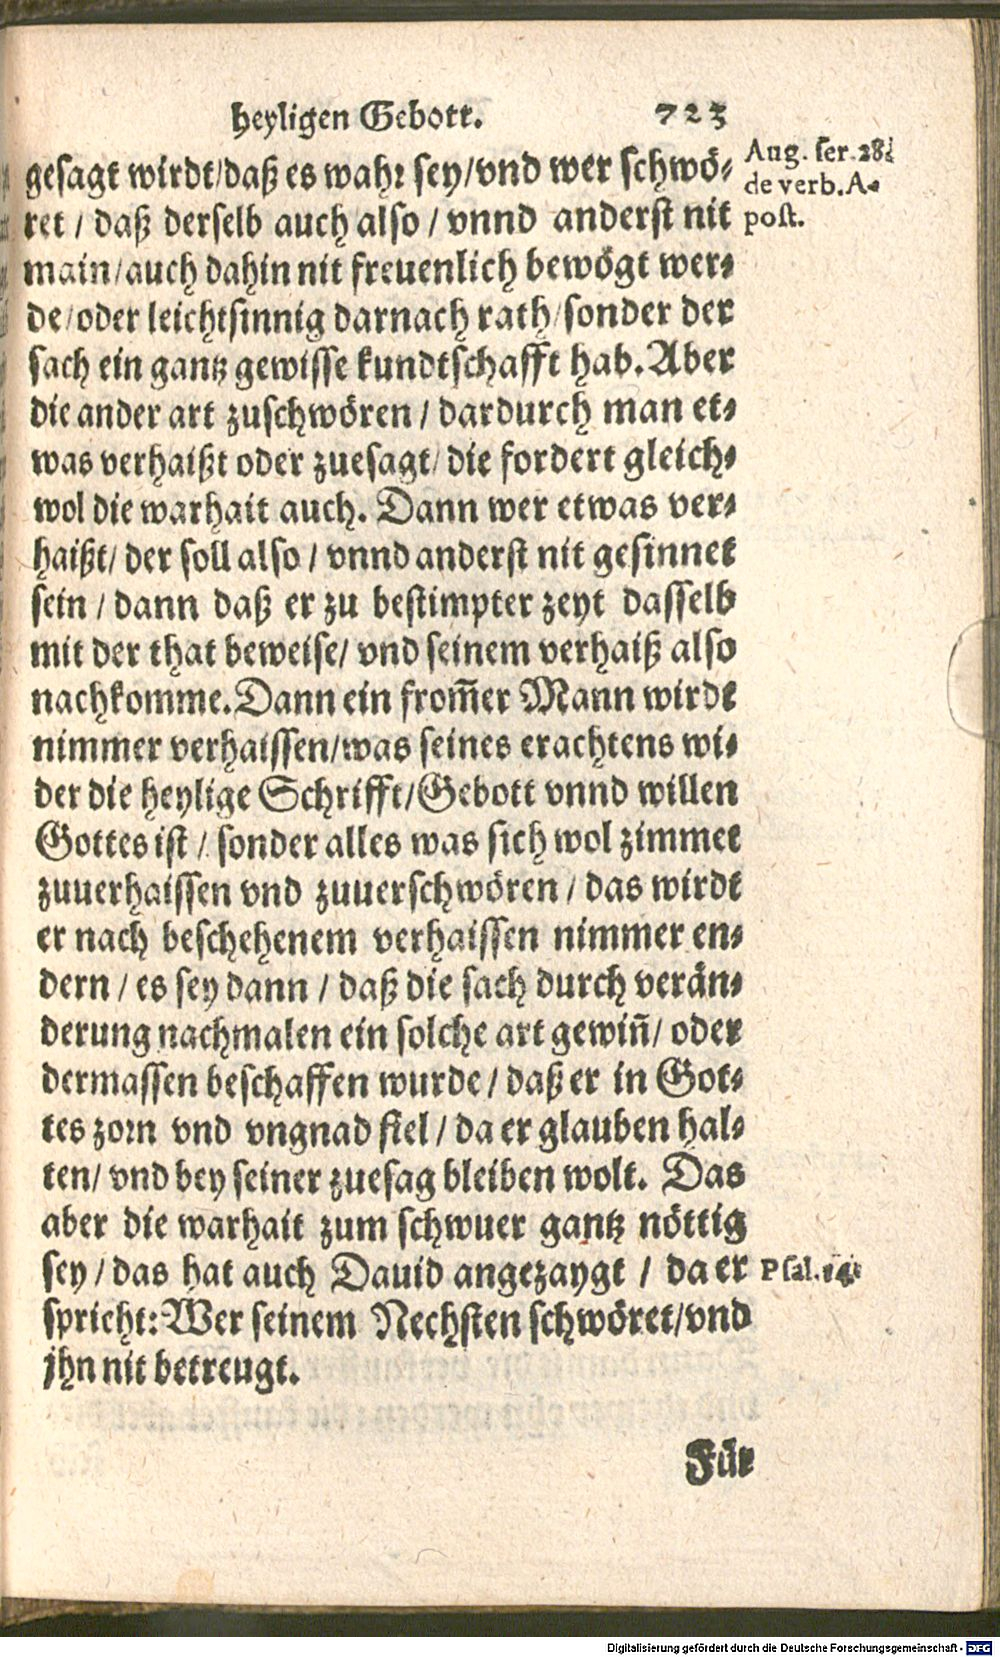 heyligen Gebott. 723
gesagt wirdt/daß es wahr sey/vnd wer schwö-
ret / daß derselb auch also / vnnd anderst nit
main/auch dahin nit freuenlich bewögt wer-
de/oder leichtsinnig darnach rath/sonder der
sach ein gantz gewisse kundtschafft hab. Aber
die ander art zuschwören / dardurch man et-
was verhaißt oder zuesagt/ die fordert gleich-
wol die warhait auch. Dann wer etwas ver-
haißt/ der soll also / vnnd anderst nit gesinnet
sein / dann daß er zu bestimpter zeyt dasselb
mit der that beweise/ vnd seinem verhaiß also
nachkomme. Dann ein from̃er Mann wirdt
nimmer verhaissen/was seines erachtens wi-
der die heylige Schrifft/Gebott vnnd willen
Gottes ist / sonder alles was sich wol zimmet
zuuerhaissen vnd zuuerschwören / das wirdt
er nach beschehenem verhaissen nimmer en-
dern / es sey dann / daß die sach durch verän-
derung nachmalen ein solche art gewiñ/ oder
dermassen beschaffen wurde / daß er in Got-
tes zorn vnd vngnad fiel / da er glauben hal-
ten/ vnd bey seiner zuesag bleiben wolt. Das
aber die warhait zum schwuer gantz nöttig
sey / das hat auch Dauid angezaygt / da er
spricht: Wer seinem Nechsten schwöret/vnd
jhn nit betreugt.
Aug. ser. 28.
de verb. A-
post.
Psal. 14.
Für
Digitalisierung gefördert durch die Deutsche Forschungsgemeinschaft - DFG